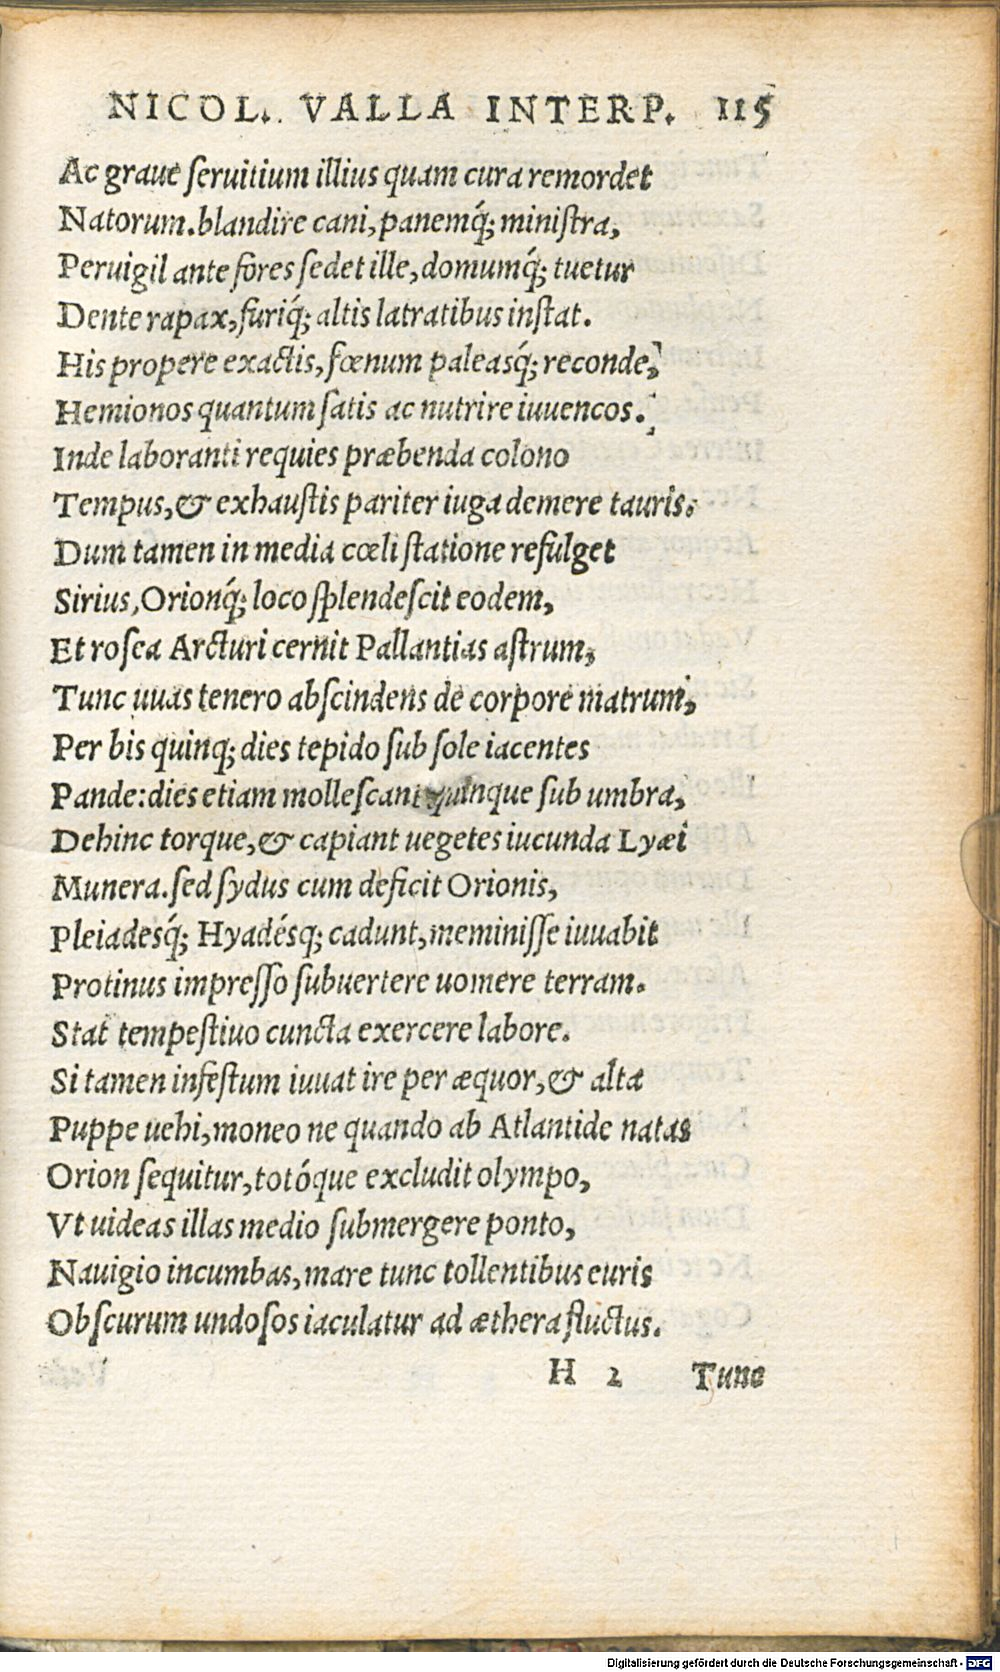 NICOL. VALLA INTERP. 115
Ac graue seruitium illius quam cura remordet
Natorum. blandire cani, panemq́; ministra,
Peruigil ante fores sedet ille, domumq́; tuetur
Dente rapax, furiq́; altis latratibus instat.
His propere exactis, fœnum paleasq́; reconde,
Hemionos quantum satis ac nutrire iuuencos.
Inde laboranti requies præbenda colono
Tempus, & exhaustis pariter iuga demere tauris.
Dum tamen in media cœli statione refulget
Sirius, Orionq́; loco splendescit eodem,
Et rosea Arcturi cernit Pallantias astrum,
Tunc uuas tenero abscindens de corpore matrum,
Per bis quinq; dies tepido sub sole iacentes
Pande: dies etiam mollescant quinque sub umbra,
Dehinc torque, & capiant uegetes iucunda Lyæi
Munera. sed sydus cum deficit Orionis,
Pleiadesq́; Hyadésq; cadunt, meminisse iuuabit
Protinus impresso subuertere uomere terram.
Stat tempestiuo cuncta exercere labore.
Si tamen infestum iuuat ire per æquor, & alta
Puppe uehi, moneo ne quando ab Atlantide natas
Orion sequitur, totóque excludit olympo,
Vt uideas illas medio submergere ponto,
Nauigio incumbas, mare tunc tollentibus euris
Obscurum undosos iaculatur ad æthera fluctus.
H 2 Tunc
Digitalisierung gefördert durch die Deutsche Forschungsgemeinschaft - DFG